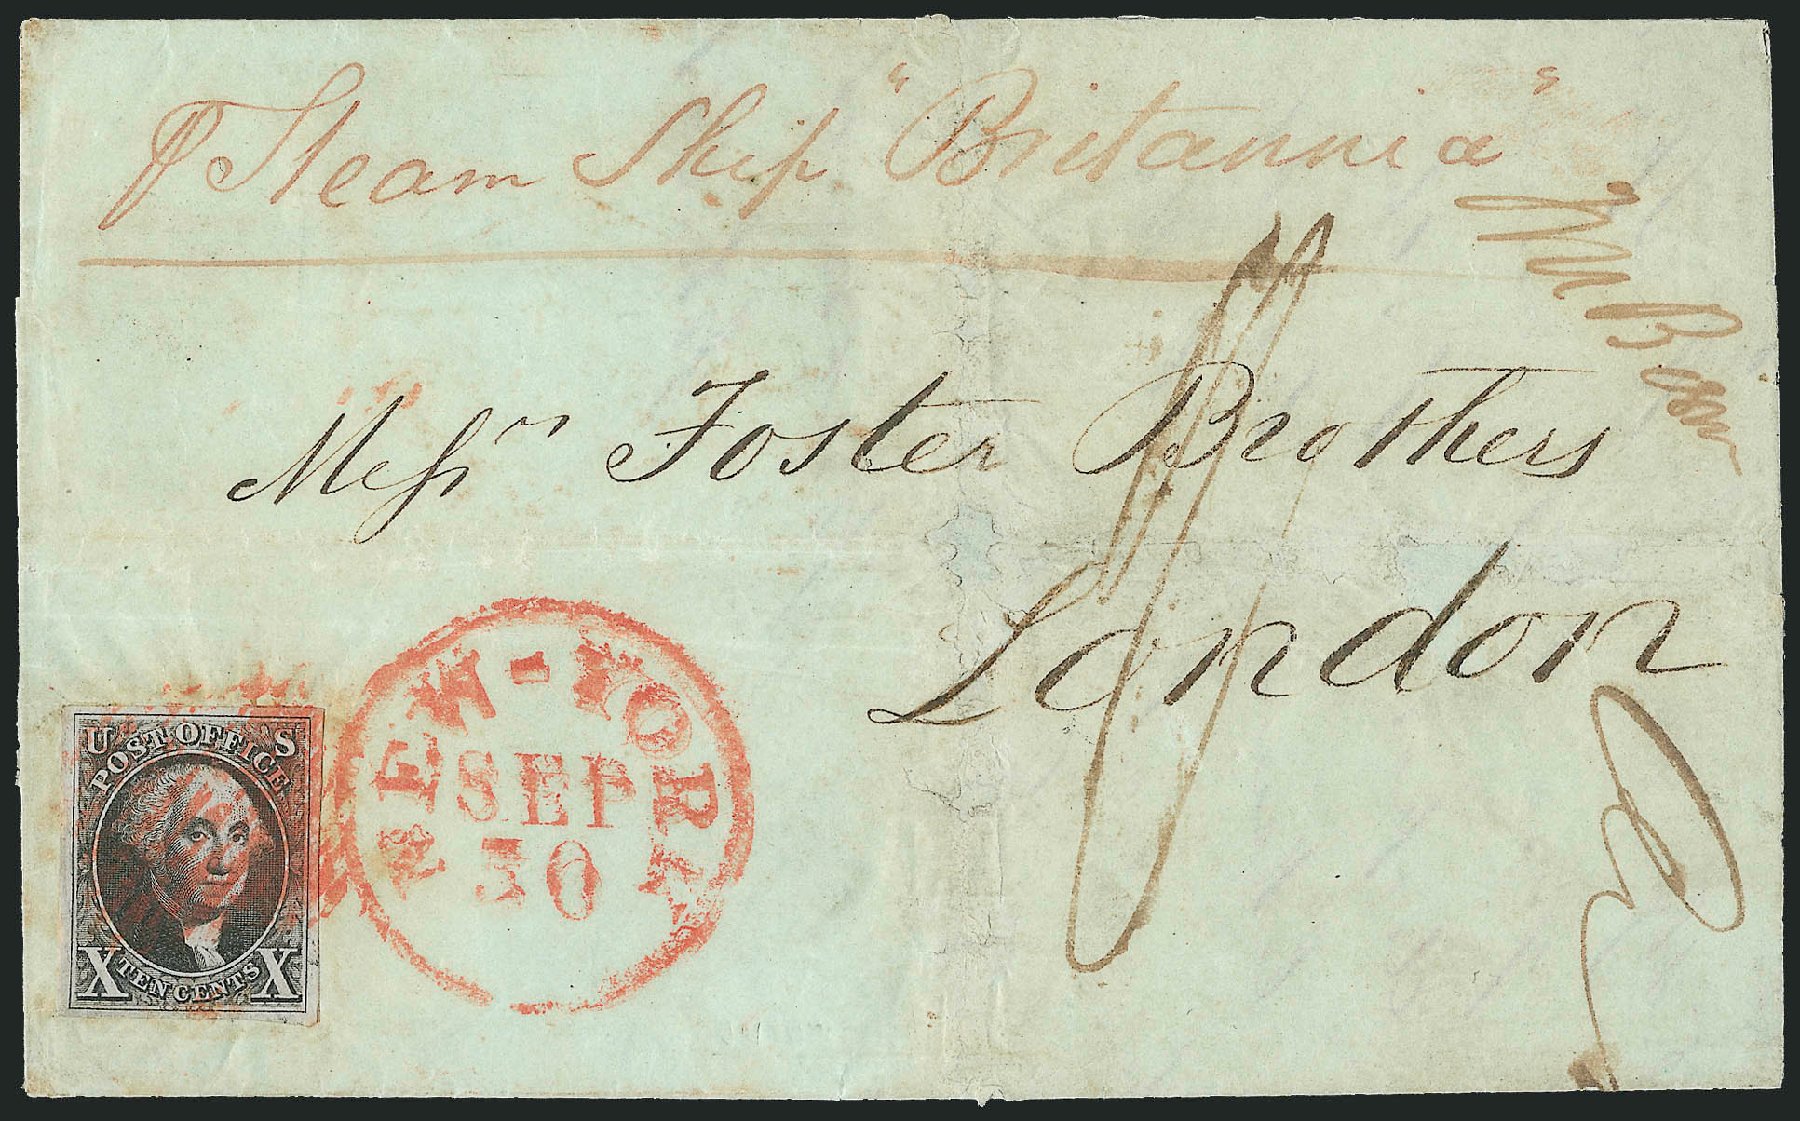 ⅌ Steam Ship "Britannia"
Messrs Foster Brothers
London
NEW-YORK
SEP
30
U S
POST OFFICE
X TEN CENTS X